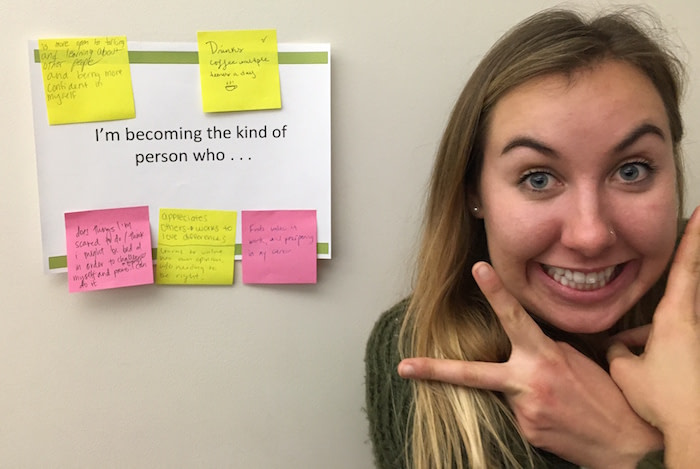 is more open to talking
and learning about
other people
and being more
confident in
myself
Drinks
coffee multiple
times a day
I'm becoming the kind of
person who . . .
does things I'm
scared to do / think
I might be bad at
in order to challenge
myself and prove I can
do it.
appreciates
others + works to
love differences
own opinion,
needing to
be right.
Finds value in
work and
in my